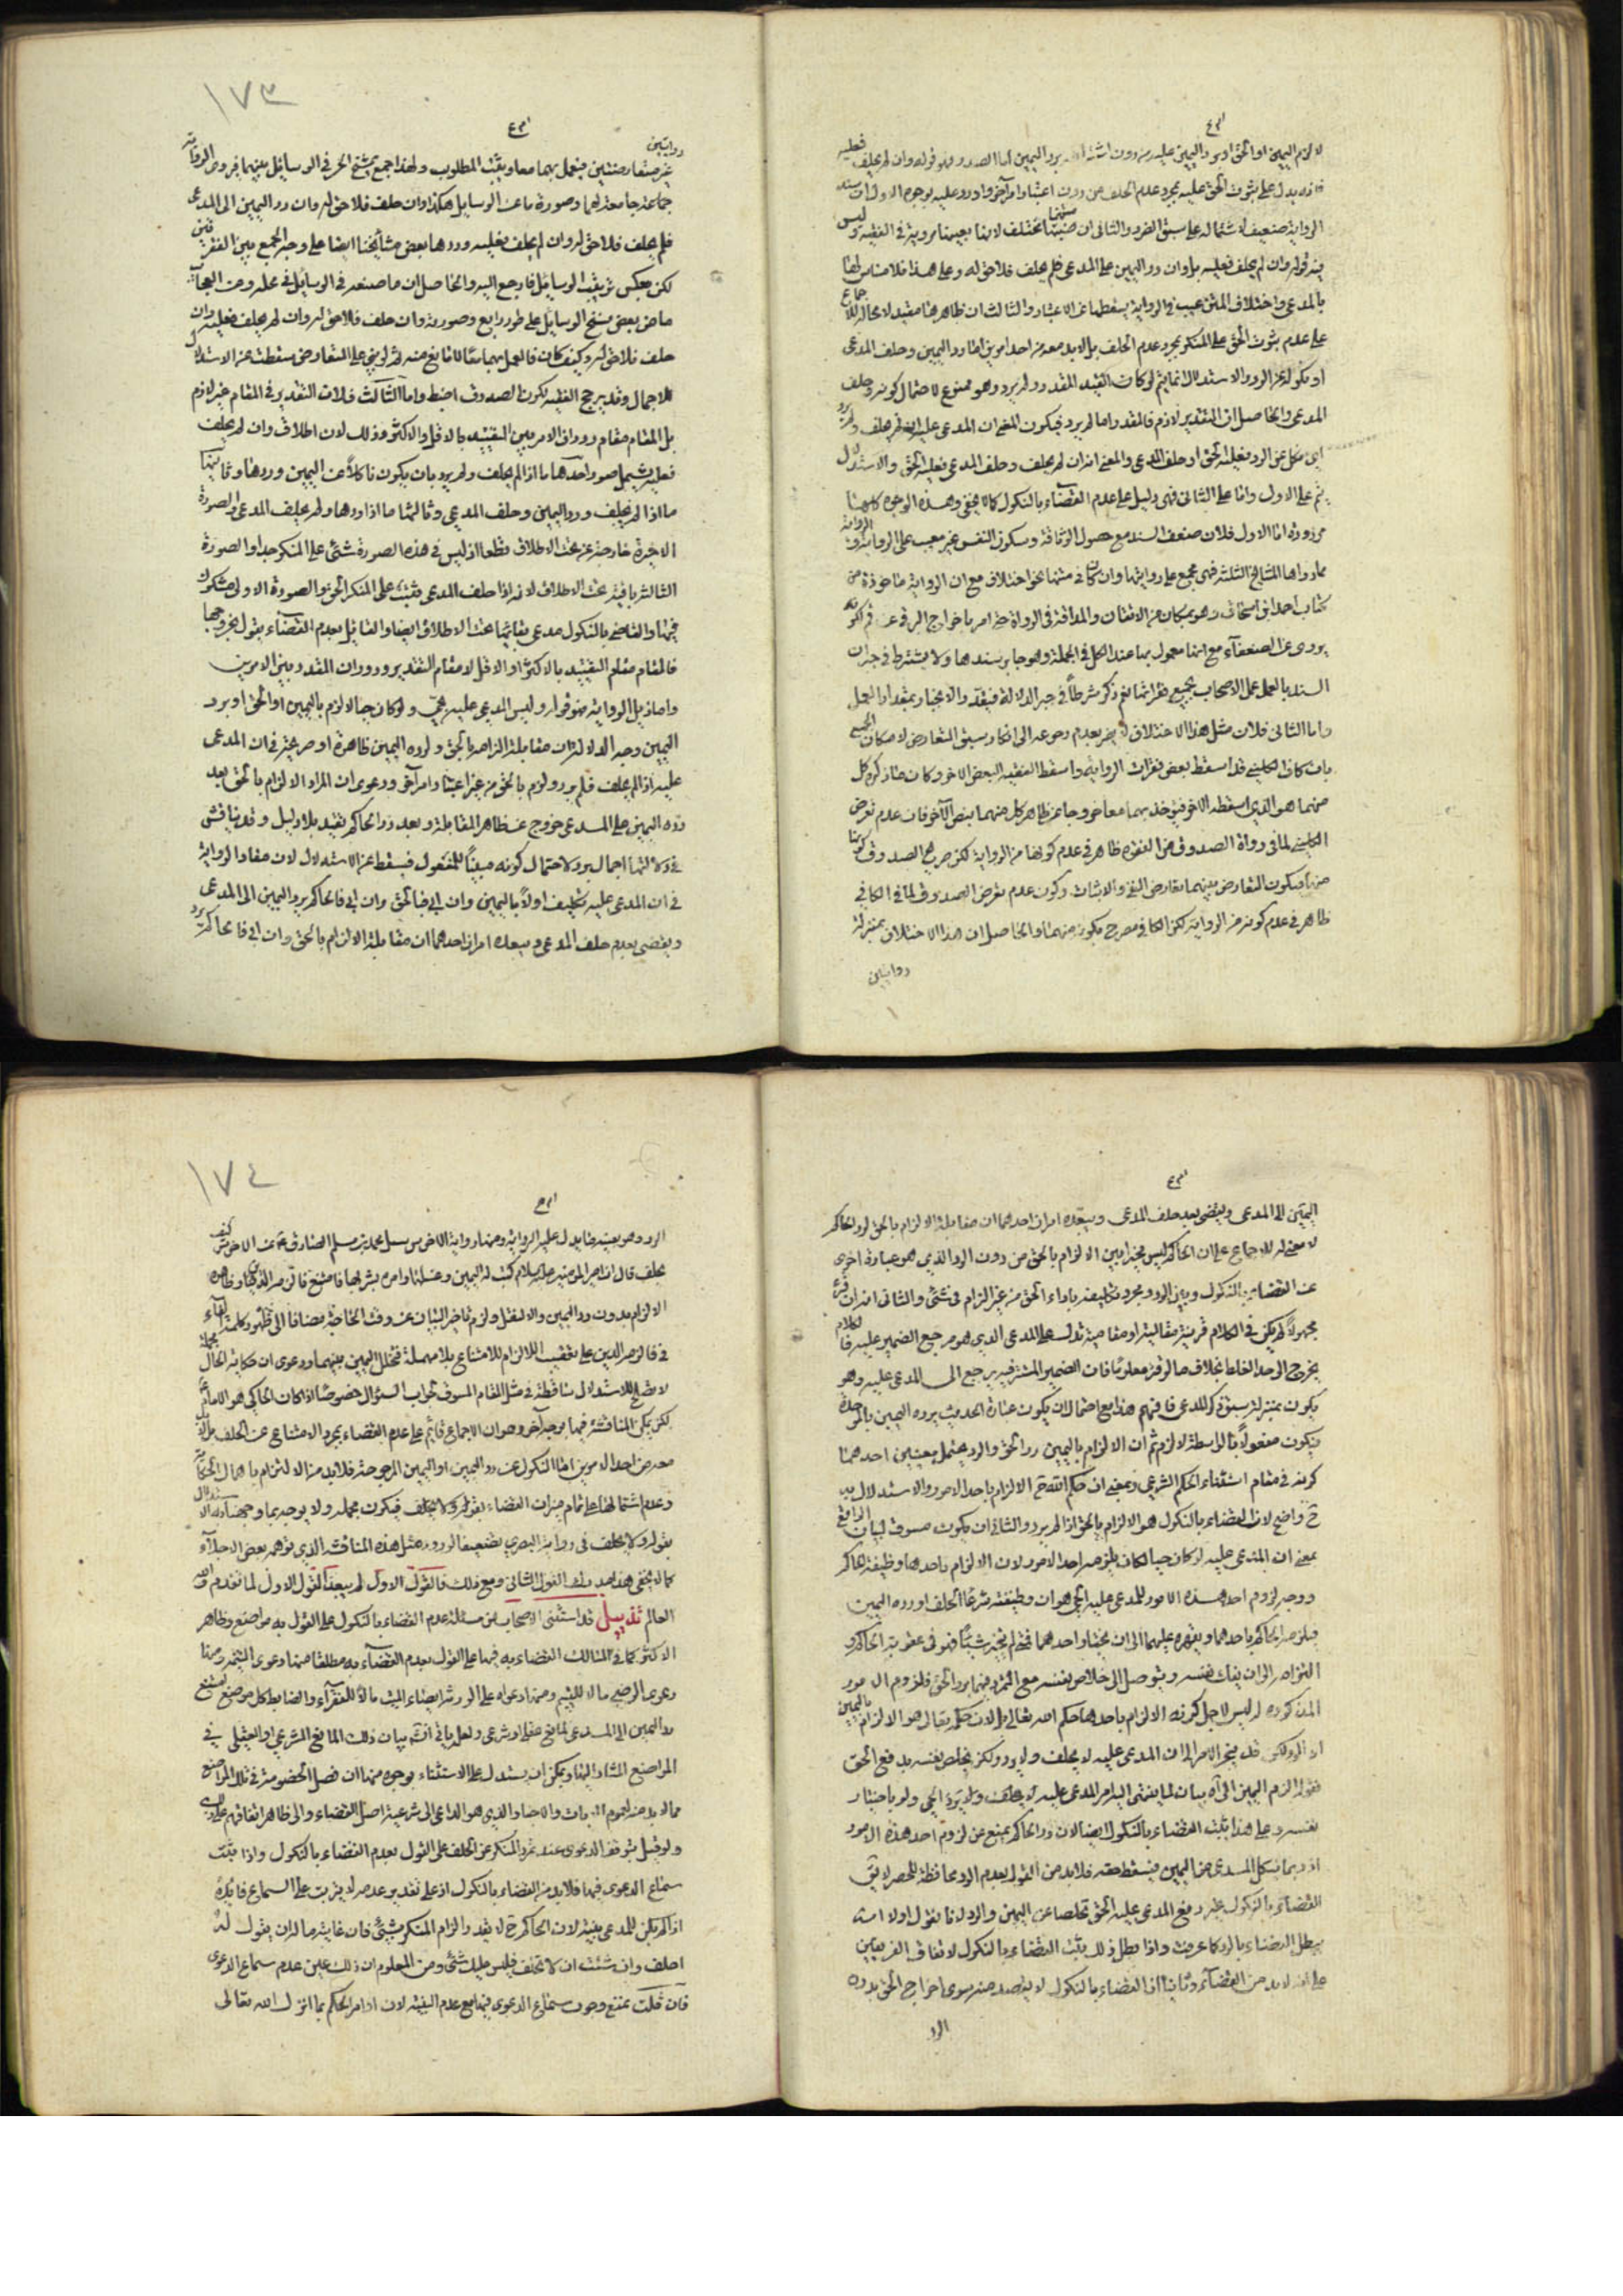 لالزم اليمين او الحق او برد اليمين عليه من دون يرد اليمين اما الصدر فهو قوله وان لم يحلف فعليه
فانه يدل على ثبوت الحق عليه بمجرد عدم الحلف من دون اعتبار امر آخر واورد عليه بوجوه الاول ان سند
الرواية ضعيف لاشتماله على والثانى ان متنها مختلف لانها بعينها مروية فى الفقيه وليس
فيه قوله وان لم يحلف فعليه بل وان رد اليمين على المدعى فلم يحلف فلا حق له وعلى هذا فلا مساس لها
بالمدعى واختلاف المتن عيب فى الرواية يسقطها عن الاعتبار والثالث ان ظاهرها مقيد لا محالة للاجماع
على عدم ثبوت الحق على المنكر بمجرد عدم الحلف بل لابد معه من احد امرين اما رد اليمين وحلف المدعى
او نكوله عن الرد والاستدلال انما يتم لو كان القيد المقدر ولم يرد وهو ممنوع لاحتمال كونه وحلف
المدعى والحاصل ان التقدير لازم فالمقدر اما لم يرد فيكون المعنى ان المدعى عليه ان لم يحلف ولم يرد
اى نكل عن الرد فعليه الحق او حلف المدعى والمعنى انه ان لم يحلف وحلف المدعى فعليه الحق والاستدلال
يتم على الاول واما على الثانى فهى دليل على عدم القضاء بالنكول كما لا يخفى وهذه الوجوه كلها
مردودة اما الاول فلان ضعف السند مع حصول الوثاقة وسكون النفس غير معيب على الرواية والرواية
مما رواها المشايخ الثلثة فهى مجمع على روايتها وان كان فى متنها نحو اختلاف مع ان الرواية ماخوذة من
كتاب احمد بن اسحاق وهو بمكان من الاتقان والمداقة فى الرواة حتى امر باخراج البرقى عن قم لكونه
يروى عن الضعفاء مع انها معمول بها عند الكل فى الجملة وهو جابر بسندها ولا يشترط فى جبران
السند بالعمل عمل الاصحاب بجميع فقراتها نعم ذكر شرطاً فى جبر الدلالة فيقدر الانجبار بمقدار العمل
واما الثانى فلان مثل هذا الاختلاف لا يضر بعدم رجوعه الى انكار سبق التعارض لامكان الجمع
بان كان الكلينى قد اسقط بعض فقرات الرواية واسقط الفقيه البعض الاخر وكان ما ذكره كل
منهما هو الذى اسقطه الاخر فيؤخذ بهما معا طرحا عن ظاهر كل منهما بنص الآخر فان عدم تعرض
الكلينى لما فى رواية الصدوق من الفقرة ظاهر فى عدم كونها من الرواية لكن صريح الصدوق كونها
منها فيكون التعارض بينهما تعارض النفى والاثبات وكون عدم تعرض الصدوق لما فى الكافى
ظاهر فى عدم كونه من الرواية لكن الكافى مصرح بكونه منها والحاصل ان هذا الاختلاف بمنزلة
روايتين
١٧٣
روايتين
غير متعارضتين فنعمل بهما معا ويثبت المطلوب ولهذا جمع الشيخ الحر فى الوسائل بينهما فروى الرواية
جماعة جامعة لهما وصورة ما عن الوسايل هكذا وان حلف فلا حق له وان رد اليمين الى المدعى
فلم يحلف فلا حق له وان لم يحلف فعليه ورواها بعض مشايخنا ايضا على وجه الجمع بين الفقرتين
لكن بعكس ترتيب الوسايل فارجع اليه والحاصل ان ما صنعه فى الوسائل فى محله ومن العجائب
ما فى بعض نسخ الوسايل على طور رابع وصورته وان حلف فلا حق له وان لم يحلف فعليه وان
حلف فلا حق له وكيف كان فالعمل بهما معا لا مانع منه ثم لو بنى على التعارض سقطت عن الاستدلال
للاجمال وقد يرجح الفقيه لكون الصدوق اضبط واما الثالث فلان التقدير فى المقام غير لازم
بل المقام مقام دوران الامر بين التقييد بالاقل والاكثر وذلك لان اطلاق وان لم يحلف
فعليه يشمل صور احدها ما اذا لم يحلف ولم يرد بان يكون ناكلاً عن اليمين وردها وثانيها
ما اذا لم يحلف ورد اليمين وحلف المدعى وثالثها ما اذا ردها ولم يحلف المدعى والصورة
الاخيرة خارجة عن تحت الاطلاق قطعا اذ ليس فى هذه الصورة شئ على المنكر جدا والصورة
الثالثة باقية تحت الاطلاق لانه اذا حلف المدعى يثبت على المنكر الحق والصورة الاولى مشكوك
فيها والقاضى بالنكول مدعى بقائها تحت الاطلاق ايضا والقائل بعدم القضاء يقول بخروجها
فالمقام مقام التقييد بالاكثر او الاقل لا مقام التقدير ودوران المقدر بين الامرين
واما ذيل الرواية فهو قوله وليس المدعى عليه بحى ولو كان حيا لالزم باليمين او الحق او برد
اليمين وجه الدلالة ان مقابلة الزامه بالحق ولرده اليمين ظاهرة او صريحة فى ان المدعى
عليه اذا لم يحلف ولم يرد ولزم بالحق من غير اعتبار امر آخر ودعوى ان المراد الالزام بالحق بعد
رده اليمين على المدعى خروج عن ظاهر المقابلة وبعد رد الحاكم تقييد بلا دليل وقد يناقش
فى دلالتها اجمال يرد لاحتمال كونه مبنياً للمفعول فيسقط عن الاستدلال لان مفاد الرواية
فى ان المدعى عليه تكليف اولاً باليمين وان ابى فبالحق وان ابى فالحاكم يرد اليمين الى المدعى
ويقضى بعدم حلف المدعى ويبعده امران احدهما ان مقابلة الالزام بالحق وان ابى فالحاكم يرد
اليمين الى المدعى ويقضى بعد حلف المدعى ويبعده امران احدهما ان مقابلة الالزام بالحق لرد الحاكم
لا معنى له للاجماع على ان الحاكم ليس مخيرا بين الالزام بالحق من دون الرد الذى هو عبارة اخرى
عن القضاء بالنكول وبين الرد ومجرد تكليفه باداء الحق من غير الزام فى شئ والثانى انه ان قرء
مجهولاً لم يكن فى الكلام قرينة مقالية او مقامية تدل على المدعى الذى هو مرجع الضمير عليه فالكلام
يخرج الى حد الغلط بخلاف ما لو قرء معلوماً فان الضمير المستتر فيه يرجع الى المدعى عليه وهو
يكون بمنزلة سبق ذكر للمدعى فافهم هذا مع احتمال ان يكون عبارة الحديث يرده اليمين بالموحدة
فيكون مفعولاً بالواسطة لالزم ثم ان الالزام باليمين رد الحق والرد يحتمل معنيين احدهما
كونه فى مقام استثناء الحكم الشرعى وبمعنى ان حكم الله تع الالزام باحد الامور والاستدلال به
ح واضح لان القضاء بالنكول هو الالزام بالحق اذا لم يرد والثانى ان يكون مسوق لبيان الواقع
بمعنى ان المدعى عليه لو كان حيا لكان يلزمه احد الامور لان الالزام باحدها وظيفة الحاكم
ووجه لزوم احد هذه الامور للمدعى عليه الحى هو ان وظيفته شرعاً الحلف او رده اليمين
فيلزمه الحاكم باحدهما ويقهره عليهما الى ان يختار احدهما فح لم يختر شيئاً فهو فى عقوبة الحاكم و
التزامه الى ان يفك نفسه ويتوصل الى خلاص نفسه مع التمرد بهما برد الحق فلزوم الامور
المذكورة له ليس لاجل كونه الالزام باحدها حكم الله تعالى بل لان حكمه تعالى هو الالزام باليمين
او الرد لكن قد ينجر الامر الى ان المدعى عليه لا يحلف ولا يرد ولكن يخلص نفسه بدفع الحق
فقوله الزم اليمين الى آه بيان لما يفضى اليه امر المدعى عليه لو يحلف ولا يرد الحى ولو باختيار
نفسه وعلى هذا يثبت القضاء بالنكول ايضا لان رد الحاكم يمنع عن لزوم احد هذه الامور
اذ ربما ينكل المدعى عن اليمين فيسقط حقه فلابد من القول بعدم الرد محافظة للحصر لا يق
القضاء بالنكول غير دفع المدعى عليه الحق تخلصا عن اليمين والرد لانا نقول اولا انه
يبطل القضاء بالرد كما عرفت واذا بطل ذلك يثبت القضاء بالنكول لاتفاق الفريقين
على انه لابد من القضاء وثانيا ان القضاء بالنكول لا يقصد منه سوى اخراج الحق بدون
الرد
١٧٤
الرد وهو بعينه ما يدل عليه الرواية ومنها رواية الاخرس محمد بن مسلم الصادق عن الاخرس كيف
يحلف قال ان امير المؤمنين عليه السلام كتب له اليمين وغسلها وامره بشربها فامتنع فالزمه الدين وظاهره
الالزام بدون رد اليمين والا لنقل ولزم تاخير البيان عن وقت الحاجة مضافا الى ظهور كلمة الفاء
فى فالزمه الدين على تعقيب الالزام للامتناع بلا مهلة تخلل اليمين بينهما ودعوى ان حكاية الحال
لا تصلح للاستدلال ساقطة فى مثل المقام المسوق لجواب السؤال خصوصا اذا كان الحاكى هو الامام ع
لكن يمكن المناقشة فيها بوجه آخر وهو ان الاجماع قائم على عدم القضاء بمجرد الامتناع عن الحلف بل لابد
معه من احد الامرين اما النكول عن رد اليمين او اليمين المردودة فلابد من الالتزام باهمال الحكاية
وعدم اشتمالها على تمام ميزان القضاء بقوله ولا يحلف فيكون مجملة ولا يوجه بما وجهنا به الاستدلال
بقوله ولا يحلف فى رواية البصرى بضعيفا لورود مثل هذه المناقشة الذى توهمه بعض الاجلاء
كما لا يخفى هذا بعد ذلك القول الثانى ومع ذلك فالقول الاول لم يبعد القول الاول لما تقدم والله
العالم تذييل قد استثنى الاصحاب من مسئلة عدم القضاء بالنكول على القول به مواضع وظاهر
الاكثر كما فى المسالك القضاء به فيها على القول بعدم القضاء به مطلقا منها دعوى
دعوى الوصى مالا لليتيم ومنها دعواه على الورثة ايصاء الميت مالاً للفقراء والضابط كل موضع يمتنع
رد اليمين الى المدعى لمانع عقلى او شرعى ولعل ياتى انشآء بيان ذلك المانع الشرعى او العقلى فى
المواضع المشار اليها ويمكن ان يستدل على الاستثناء بوجوه منها ان فصل الخصومة فى تلك المواضع
مما لابد منه لعموم الايات والاخبار والذى هو الداعى الى شرعية اصل القضاء والى ظاهر اتفاقهم على
ولو قيل بتوقف الدعوى عند تمرد المنكر عن الحلف على القول بعدم القضاء بالنكول واذا ثبت
سماع الدعوى فيها فلابد من القضاء بالنكول اذ على تقدير عدمه لا يترتب على السماع فائدة
اذا لم يكن للمدعى بينة لان الحاكم ح لا يقدر الزام المنكر بشئ فان غايته ما له ان يقول له
احلف وان شئت ان لا تحلف فليس عليك شئ ومن المعلوم ان ذلك عين عدم سماع الدعوى
فان قلت نمنع وجوب سماع الدعوى فيها مع عدم البينة لان اوامر الحكم بما انزل الله تعالى